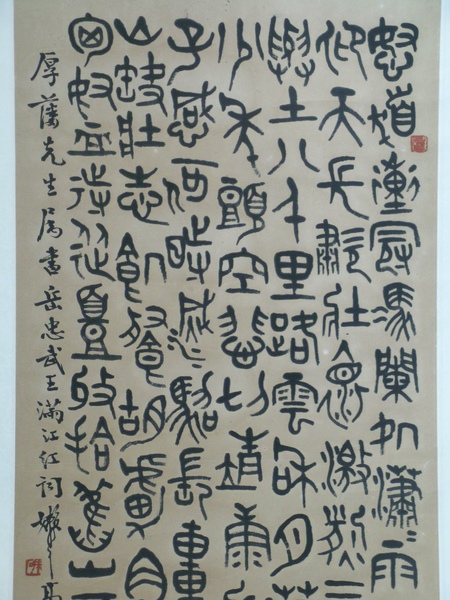 怒髮衝冠馮闌処瀟〻雨
仰天長歗壯懷激烈三
與土八千里路雲和月莫
少年頭空悲切靖康
子憾何時滅〻駕長車
山缺壯志飢餐胡虜肉
匈奴血待從頭收拾舊山
厚藩先生属書岳忠武王滿江紅詞